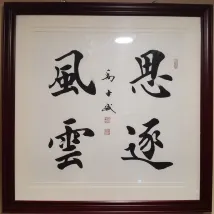 思逐
風雲